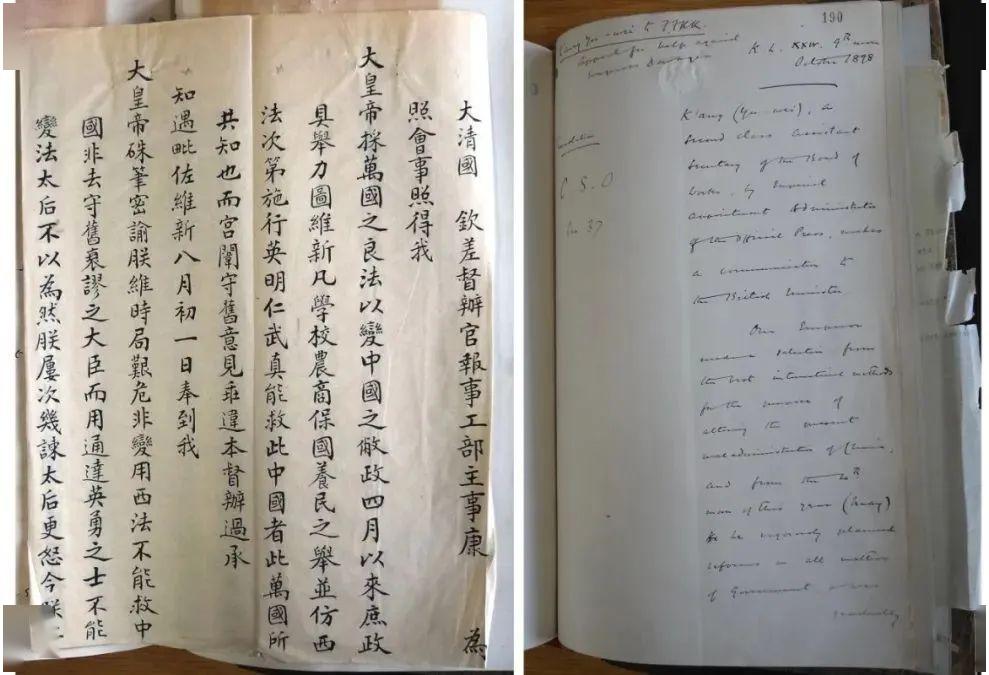 大清國 欽差督辦官報事工部主事康 為
照會事照得我
大皇帝採萬國之良法以變中國之敝政四月以來庶政
具舉力圖維新凡學校農商保國養民之舉並仿西
法次第施行英明仁武真能救此中國者此萬國所
共知也而宮闈守舊意見乖違本督辦過承
知遇毗佐維新八月初一日奉到我
大皇帝硃筆密諭朕維時局艱危非變用西法不能救中
國非去守舊衰謬之大臣而用通達英勇之士不能
變法太后不以為然朕屢次幾諫太后更怒今朕
190
Kang Yu-wei to
Appeal for help against
Empress Dowager
K. S. XXIV. 9th moon
October 1898
C S O
No 37
K'ang (Yu-wei), a
Second class Assistant
Secretary of the Board of
Works, by Imperial
appointment Administrator
of the Official Press, makes
a communication to
the British Minister
Our Emperor
made selection from
the best international methods
for the purpose of
altering the present
maladministration of China,
and from the 4th
moon of this year (May)
he vigorously planned
reforms in all matters
of Government
gradually